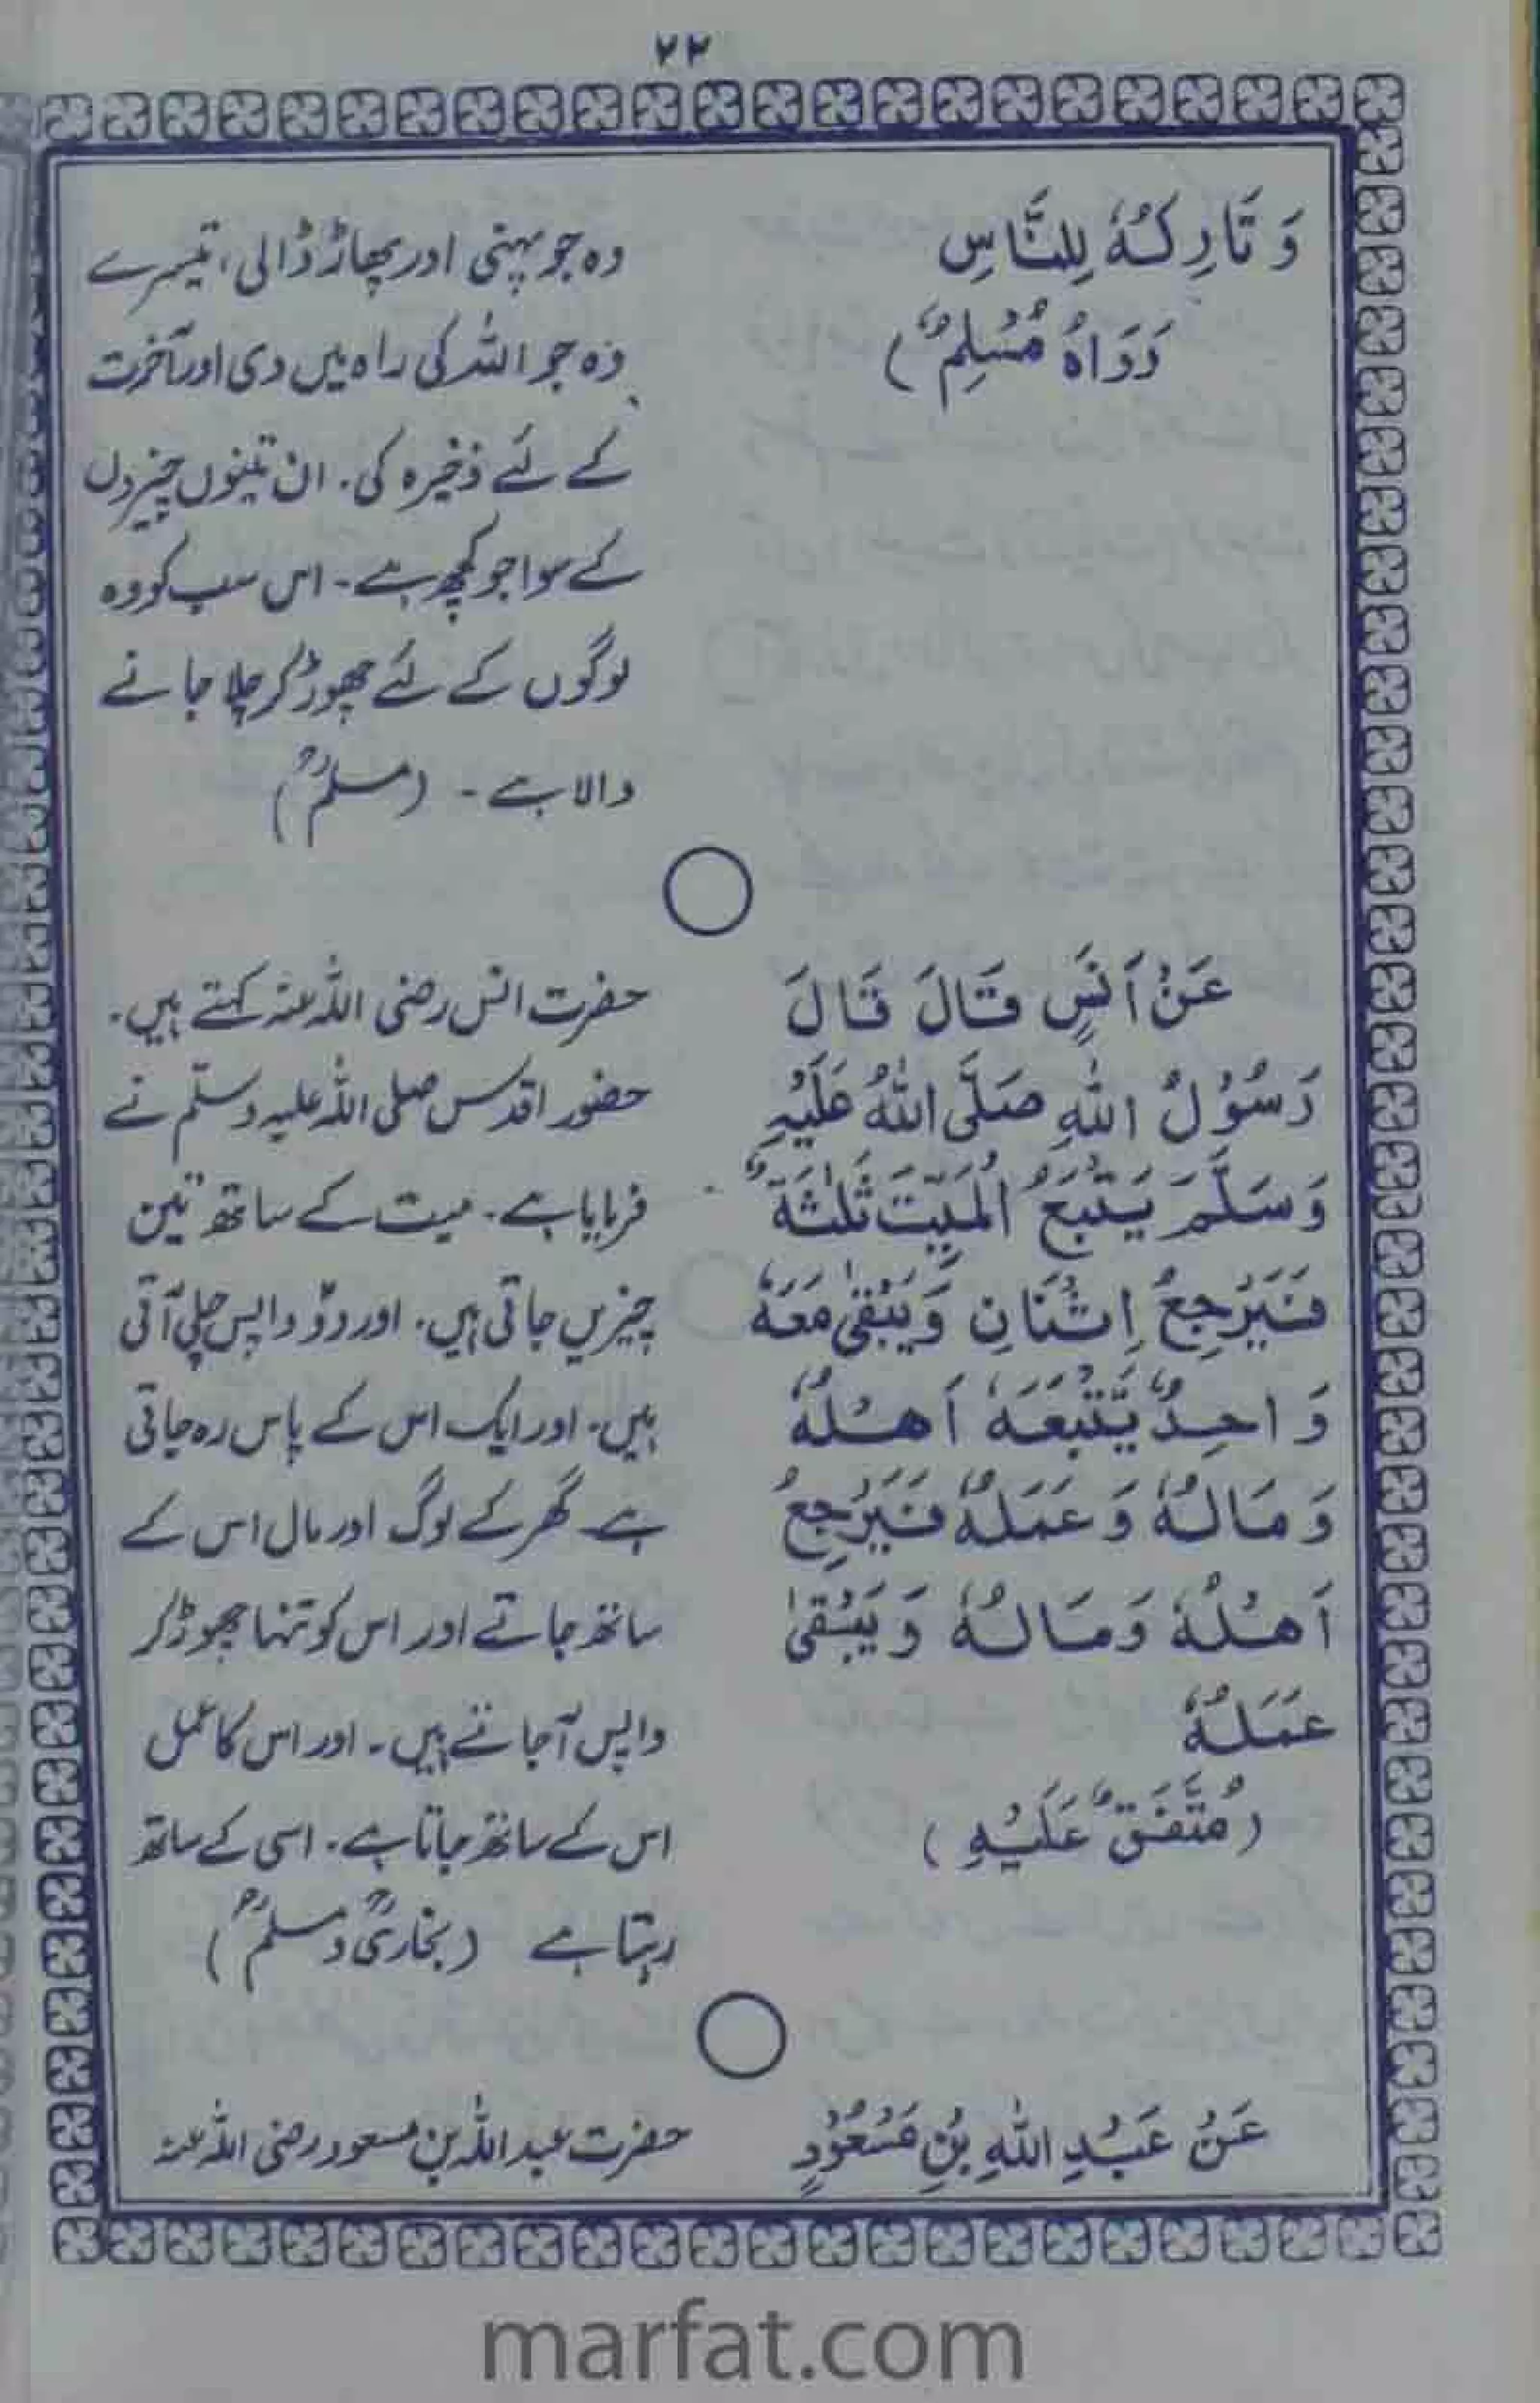 ۲۲
وَ تَارِكُهٗ لِلنَّاسِ
رَوَاهُ مُسْلِمٌ)
وہ جو پہنی اور پھاڑ ڈالی، تیسرے
وہ جو اللہ کی راہ میں دی اور آخرت
کے لئے ذخیرہ کی۔ ان تینوں چیزوں
کے سوا جو کچھ ہے۔ اس سب کو وہ
لوگوں کے لئے چھوڑ کر چلا جانے
والا ہے۔ (مسلمؒ)
عَنْ اَنَسٍ قَالَ قَالَ
رَسُوْلُ اللّٰهِ صَلَّى اللّٰهُ عَلَيْهِ
وَسَلَّمَ يَتْبَعُ الْمَيِّتَ ثَلٰثَةٌ
فَيَرْجِعُ اِثْنَانِ وَيَبْقٰى مَعَهٗ
وَاحِدٌ يَّتْبَعُهٗ اَهْلُهٗ
وَ مَالُهٗ وَ عَمَلُهٗ فَيَرْجِعُ
اَهْلُهٗ وَمَالُهٗ وَيَبْقٰى
عَمَلُهٗ
(مُتَّفَقٌ عَلَيْهِ)
حضرت انس رضی اللہ عنہ کہتے ہیں۔
حضور اقدس صلی اللہ علیہ وسلّم نے
فرمایا ہے۔ میت کے ساتھ تین
چیزیں جاتی ہیں۔ اور دو واپس چلی آتی
ہیں۔ اور ایک اس کے پاس رہ جاتی
ہے گھر کے لوگ اور مال اس کے
ساتھ جاتے اور اس کو تنہا چھوڑ کر
واپس آجاتے ہیں۔ اور اس کا عمل
اس کے ساتھ جاتا ہے۔ اسی کے ساتھ
رہتا ہے (بخاریؒ و مسلمؒ)
عَنْ عَبْدِ اللّٰهِ بْنِ مَسْعُوْدٍ
حضرت عبداللہ بن مسعود رضی اللہ عنہ
marfat.com